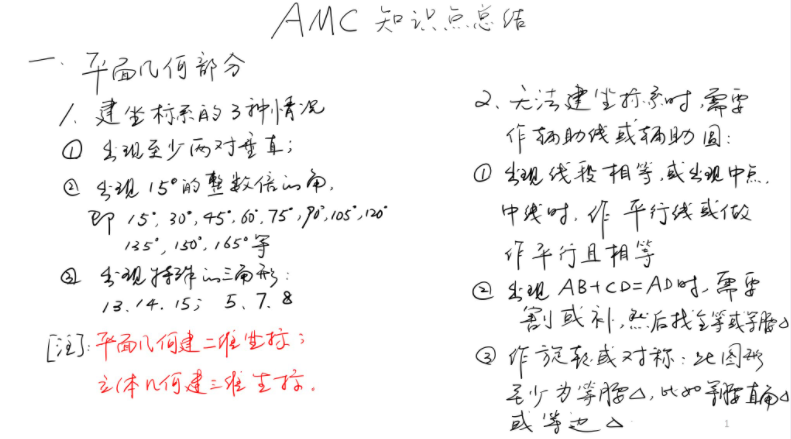 AMC 知识点总结
一、平面几何部分
1. 建坐标系的3种情况
① 出现至少两对垂直;
② 出现15°的整数倍的角,
即 15°, 30°, 45°, 60°, 75°, 90°, 105°, 120°
135°, 150°, 165° 等
③ 出现特殊的三角形:
13、14、15; 5、7、8
[注]: 平面几何建二维坐标;
立体几何建三维坐标.
2、无法建坐标系时,需要
作辅助线或辅助圆:
① 出现线段相等,或出现中点,
中线时,作平行线或做
作平行且相等
② 出现 AB+CD=AD时,需要
割或补,然后找全等或等腰△
③ 作旋转或对称:此图形
至少为等腰△,比如等腰直角△
或等边△
1